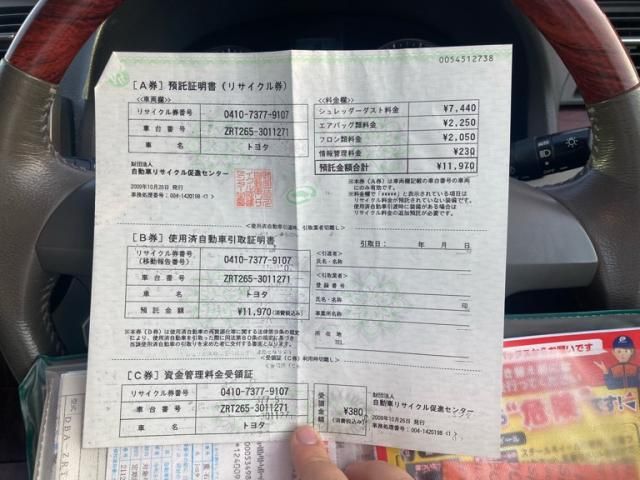 0054512738
[A券] 預託証明書 (リサイクル券)
<<車両欄>>
リサイクル券番号 0410-7377-9107
車台番号 ZRT265-3011271
車名 トヨタ
財団法人
自動車リサイクル促進センター
2009年10月26日 発行
事務処理番号:004-1420198
<<料金欄>>
シュレッダーダスト料金 ¥7,440
エアバッグ類料金 ¥2,250
フロン類料金 ¥2,050
情報管理料金 ¥230
預託金額合計 ¥11,970
※本券(A券)は車両欄記載の車台番号の車両
にのみ有効です。
※料金欄で「*****」と表示されている項目は
リサイクル料金が預託されていない装備です。
使用済自動車引渡時に装備がある場合は
リサイクル料金の追加預託が必要です。
<使用済自動車引渡時、引取業者切離し>
[B券] 使用済自動車引取証明書
リサイクル券番号
(移動報告番号) 0410-7377-9107
車台番号 ZRT265-3011271
車名 トヨタ
預託金額 ¥11,970(消費税込み)
※本券(B券)は使用済自動車の再資源化等に関する法律第9条の規定
により、使用済自動車を引取った際に同法第80条の規定に基づき
当該使用済自動車の引取りを求めた者に交付する書面となります。
引取日: 年 月 日
<引渡者>
氏名・名称
<引取業者>
登録番号
氏名・名称 印
事業所名
所在地
TEL
<受領証(C券)利用時切離し>
[C券] 資金管理料金受領証
リサイクル券番号 0410-7377-9107
車台番号 ZRT265-3011271
車名 トヨタ
受領金額 ¥380
(消費税込み)
財団法人
自動車リサイクル促進センター
2009年10月26日 発行
事務処理番号:004-1420198
お願いです
危険